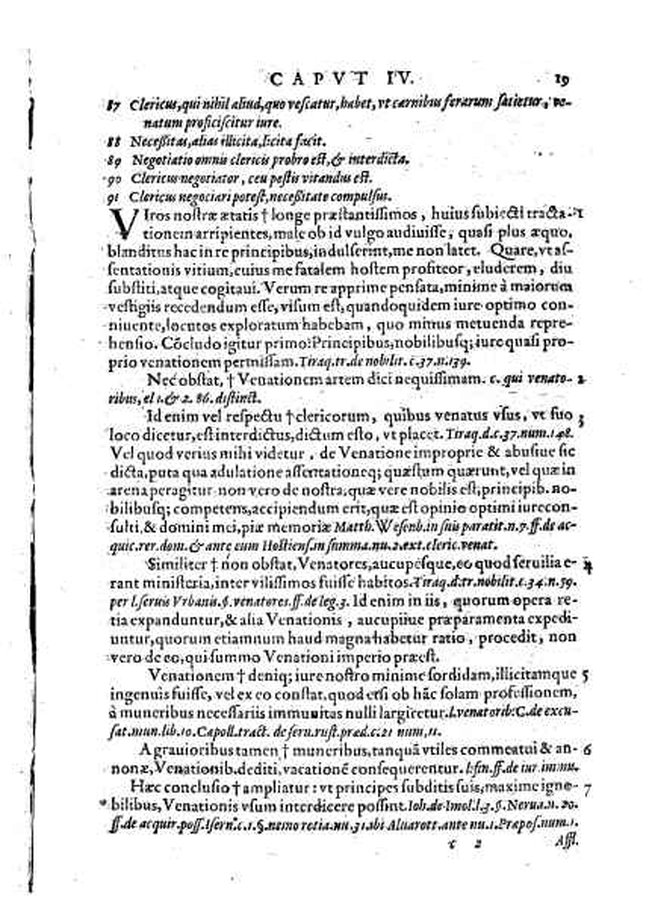 CAPVT IV. 19
87 Clericus, qui nihil aliud, quo vescatur, habet, vt carnibus ferarum satietur, ve-
natum proficiscitur iure.
88 Necessitas, alias illicita, licita facit.
89 Negotiatio omnis clericis probro est, & interdicta.
90 Clericus negotiator, ceu pestis vitandus est.
91 Clericus negociari potest, necessitate compulsus.
VIros nostræ ætatis † longe præstantissimos, huius subiecti tracta- 1
tionem arripientes, male ob id vulgo audiuisse, quasi plus æquo,
blanditus hac in re principibus, indulserint, me non latet. Quare, vt as-
sentationis vitium, cuius me fatalem hostem profiteor, eluderem, diu
substiti, atque cogitaui. Verum re apprime pensata, minime à maiorum
vestigiis recedendum esse, visum est, quandoquidem iure optimo con-
niuente, locutos exploratum habebam, quo minus metuenda repre-
hensio. Cōcludo igitur primo: Principibus, nobilibusq; iure quasi pro-
prio venationem permissam. Tiraq. tr. de nobilit. c. 37. n. 139.
Nec obstat, † Venationem artem dici nequissimam. c. qui venato- 2
ribus, el 1. & 2. 86. distinct.
Id enim vel respectu † clericorum, quibus venatus vsus, vt suo 3
loco dicetur, est interdictus, dictum esto, vt placet. Tiraq. d. c. 37. num. 148.
Vel quod verius mihi videtur, de Venatione improprie & abusiue sic
dicta, puta qua adulatione assentationeq; quæstum quærunt, vel quæ in
arena peragitur non vero de nostra, quæ vere nobilis est, principib. no-
bilibusq; competens, accipiendum erit, quæ est opinio optimi iurecon-
sulti, & domini mei, piæ memoriæ Matth. Wesenb. in suis paratit. n. 7. ff. de ac-
quir. rer. dom. & ante eum Hostiens. in summa. nu. 2. ext. cleric. venat.
Similiter † non obstat, Venatores, aucupesque, eo quod seruilia e- 4
rant ministeria, inter vilissimos fuisse habitos. Tiraq. d. tr. nobilit. c. 34. n. 59.
per l. seruis Vrbanis. §. venatores. ff. de leg. 3. Id enim in iis, quorum opera re-
tia expanduntur, & alia Venationis, aucupiiue præparamenta expedi-
untur, quorum etiamnum haud magna habetur ratio, procedit, non
vero de eo, qui summo Venationi imperio præest.
Venationem † deniq; iure nostro minime sordidam, illicitamque 5
ingenuis fuisse, vel ex eo constat, quod etsi ob hāc solam professionem,
à muneribus necessariis immunitas nulli largiretur. l. venatorib. C. de excu-
sat. mun. lib. 10. Capoll. tract. de seru. rust. præd. c. 21 num. 11.
A grauioribus tamen † muneribus, tanquā vtiles commeatui & an- 6
nonæ, Venationib. dediti, vacationē consequerentur. l. fin. ff. de iur. immu.
Hæc conclusio † ampliatur: vt principes subditis suis, maxime igno- 7
bilibus, Venationis vsum interdicere possint. Ioh. de Imol. l. 3. §. Nerua. n. 20.
ff. de acquir. poss. Isern. c. 1. §. nemo retia. nu. 31. ibi Aluarott. ante nu. 1. Præpos. num. 1.
c 2 Affl.